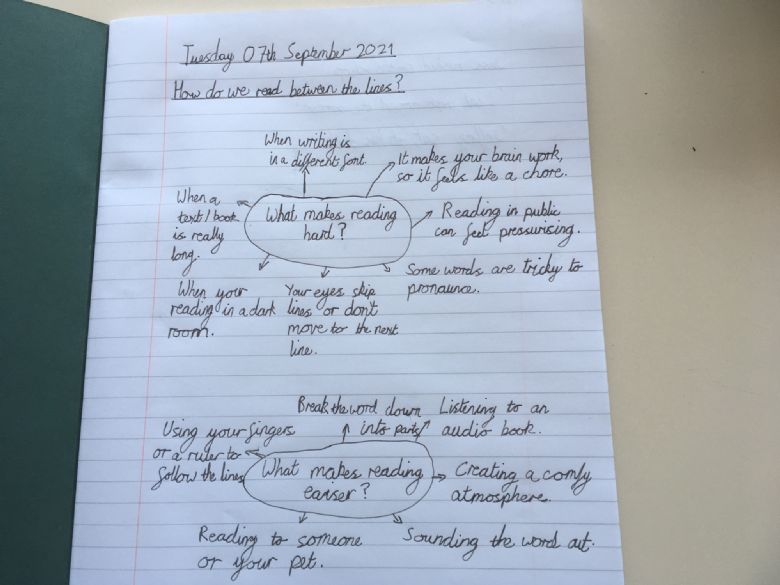 Tuesday 07th September 2021
How do we read between the lines?
When writing is
in a different font.
It makes your brain work,
so it feels like a chore.
When a
text/book
is really
long.
What makes reading
hard?
Reading in public
can feel pressurising.
Some words are tricky to
pronounce.
When your
reading in a dark
room.
Your eyes skip
lines or don't
move to the next
line.
Break the word down
into parts
Listening to an
audio book.
Using your fingers
or a ruler to
follow the lines
What makes reading
eariser?
Creating a comfy
atmosphere.
Reading to someone
or your pet.
Sounding the word out.